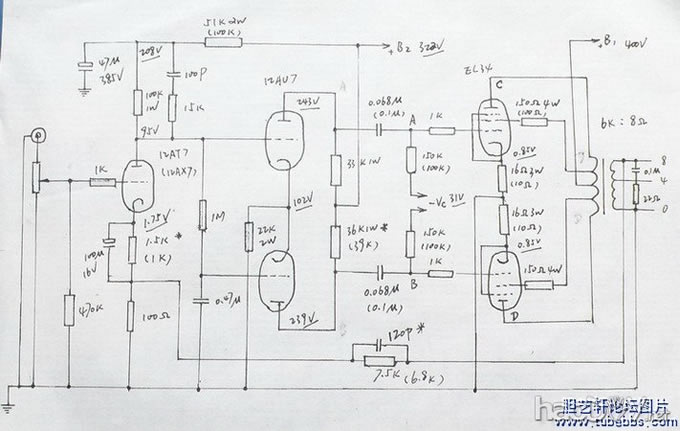 51K 2W
(100K)
47μ
385V
208V
100P
100K
1W
15K
95V
12AU7
243V
A
0.068μ
(0.1μ)
A
1K
+B2 322V
EL34
C
+B1 400V
150Ω 4W
(100Ω)
6K : 8Ω
1K
12AT7
(12AX7)
33K1W
150K
(100K)
0.85V
16Ω 3W
(10Ω)
8
0.1μ
4
22Ω
0
1.75V
100μ
16V
1.5K *
(1K)
1M
102V
22K
2W
36K1W*
(39K)
-Vc 31V
16Ω 3W
(10Ω)
0.85V
150K
(100K)
1K
150Ω 4W
470K
100Ω
0.47μ
239V
B
0.068μ
(0.1μ)
B
D
120P*
7.5K (6.8K)
胆艺轩论坛图片
www.tubebbs.com